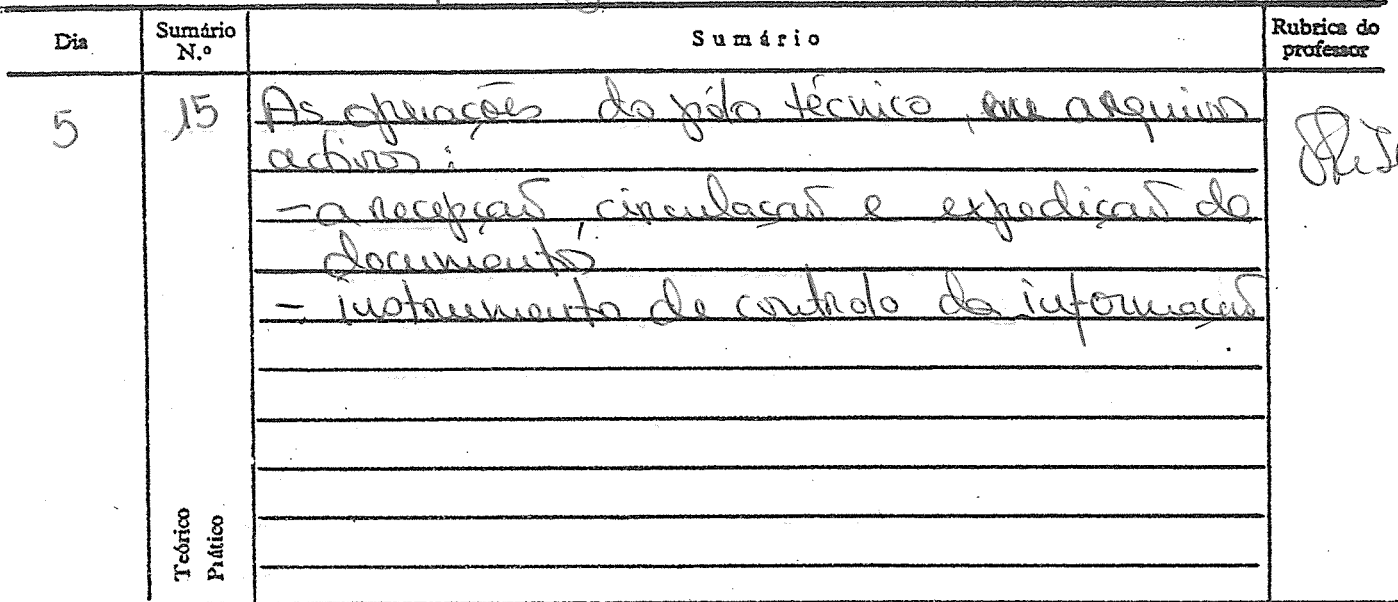 Dia
Sumário N.º
Sumário
Rubrica do professor
5
15
As operações do pólo técnico, em arquivos
activos:
- a recepção circulação e expedição de
documentos
- instrumento de controlo da informação
Teórico
Prático